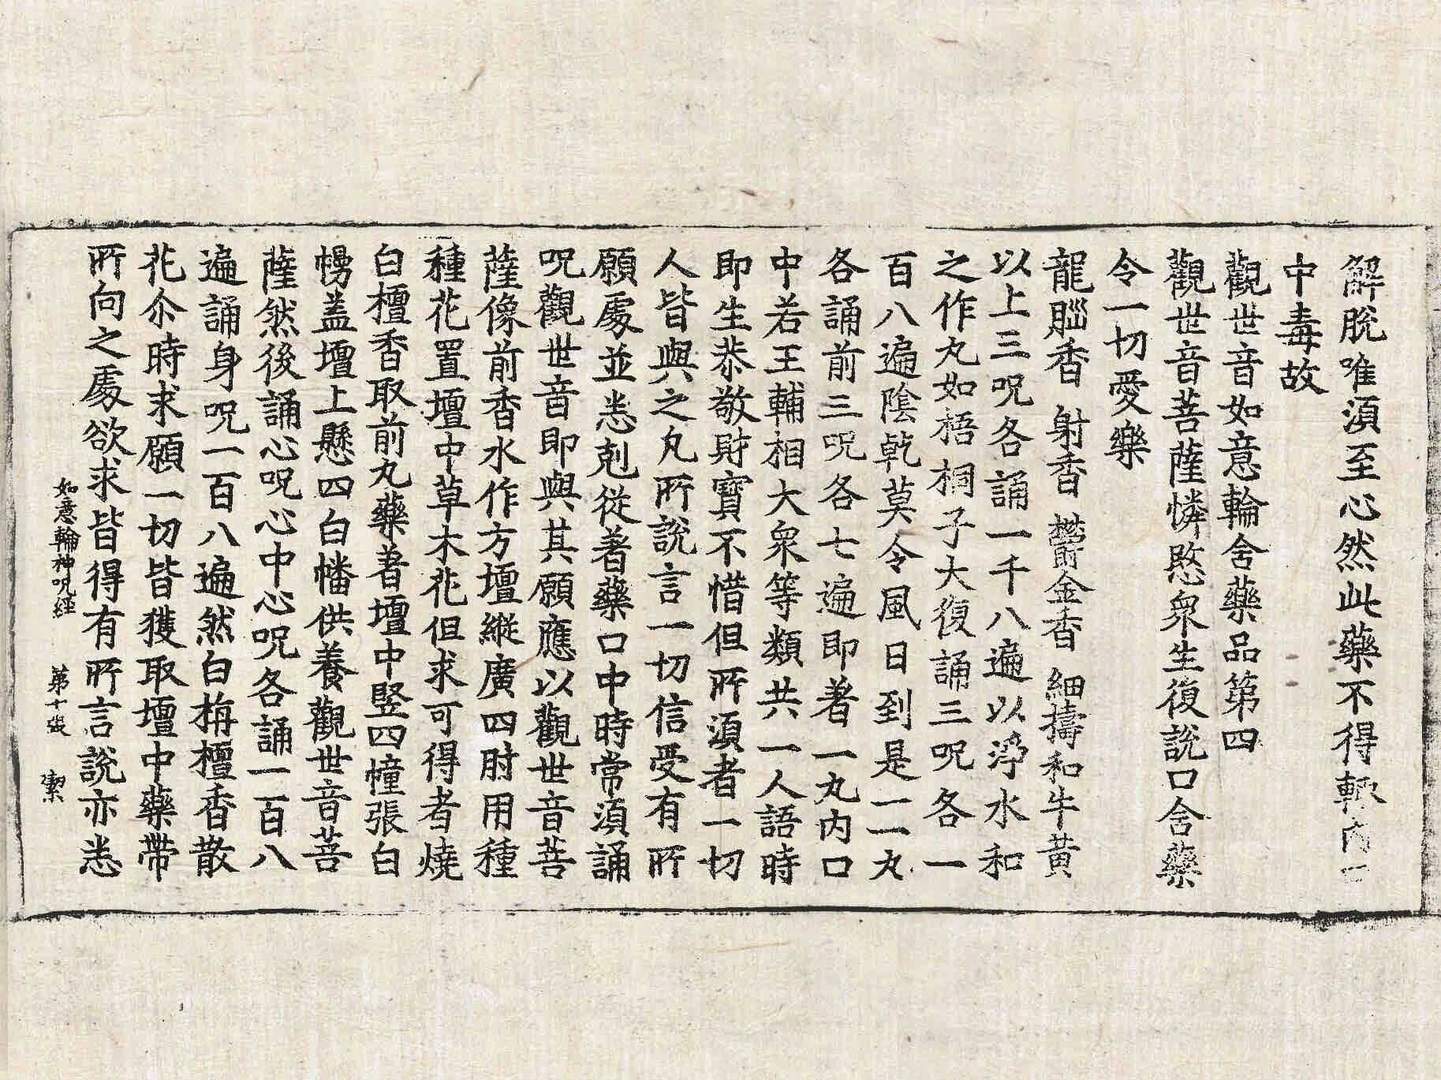 解脫唯湏至心然此藥不得輙內口
中毒故
觀世音如意輪含藥品第四
觀世音菩薩憐愍衆生復說口含藥
令一切愛樂
龍腦香 射香 欝金香 細擣和牛黃
以上三呪各誦一千八遍以淨水和
之作丸如梧桐子大復誦三呪各一
百八遍陰乾莫令風日到是一一丸
各誦前三呪各七遍即著一丸內口
中若王輔相大衆等類共一人語時
即生恭敬財寶不惜但所湏者一切
人皆與之凡所說言一切信受有所
願處並悉剋從著藥口中時常湏誦
呪觀世音即與其願應以觀世音菩
薩像前香水作方壇縱廣四肘用種
種花置壇中草木花但求可得者燒
白檀香取前丸藥著壇中竪四幢張白
幔盖壇上懸四白幡供養觀世音菩
薩然後誦心呪心中心呪各誦一百八
遍誦身呪一百八遍然白栴檀香散
花尒時求願一切皆獲取壇中藥帶
所向之處欲求皆得有所言說亦悉
如意輪神呪經 第十張 潔